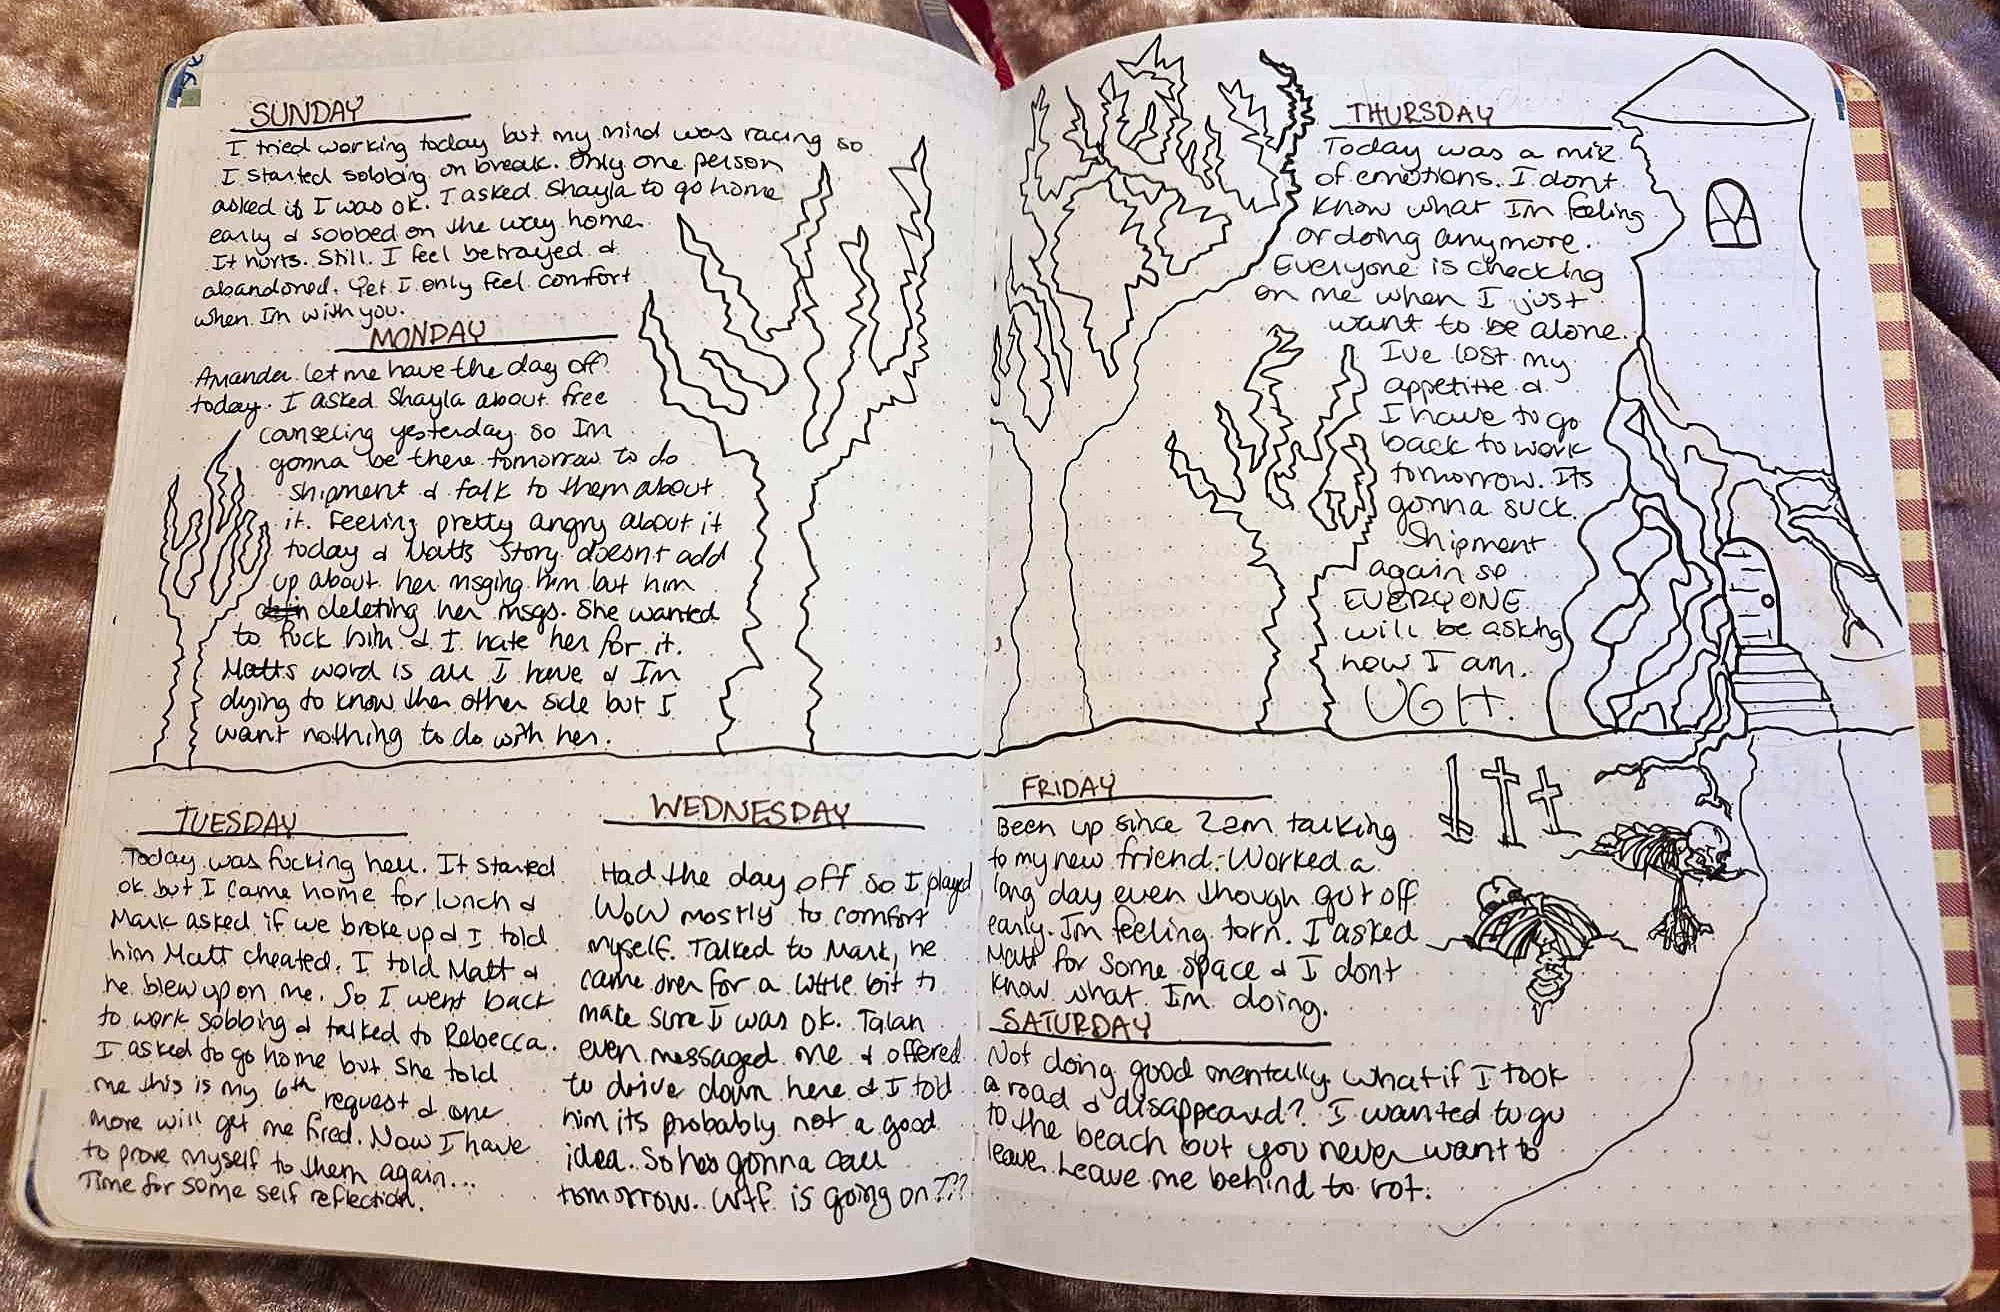 SUNDAY
I tried working today but my mind was racing so
I started sobbing on break. Only one person
asked if I was ok. I asked Shayla to go home
early & sobbed on the way home.
It hurts. Still. I feel betrayed &
abandoned. Yet I only feel comfort
when Im with you.
MONDAY
Amanda let me have the day off
today. I asked Shayla about free
counseling yesterday so Im
gonna be there tomorrow to do
shipment & talk to them about
it. Feeling pretty angry about it
today & Matts story doesnt add
up about her msging him but him
deleting her msgs. She wanted
to fuck him & I hate her for it.
Matts word is all I have & Im
dying to know the other side but I
want nothing to do with her.
TUESDAY
Today was fucking hell. It started
ok but I came home for lunch &
Mark asked if we broke up & I told
him Matt cheated. I told Matt &
he blew up on me. So I went back
to work sobbing & talked to Rebecca.
I asked to go home but she told
me this is my 6th request & one
more will get me fired. Now I have
to prove myself to them again...
Time for some self reflection.
WEDNESDAY
Had the day off so I played
WoW mostly to comfort
myself. Talked to Mark, he
came over for a little bit to
make sure I was ok. Talan
even messaged me & offered
to drive down here & I told
him its probably not a good
idea. So hes gonna call
tomorrow. Wtf is going on???
THURSDAY
Today was a mix
of emotions. I dont
know what Im feeling
or doing anymore.
Everyone is checking
on me when I just
want to be alone.
Ive lost my
appetitte &
I have to go
back to work
tomorrow. Its
gonna suck.
Shipment
again so
EVERYONE
will be asking
how I am.
UGH.
FRIDAY
Been up since 2am talking
to my new friend. Worked a
long day even though got off
early. Im feeling torn. I asked
Matt for some space & I dont
know what Im doing.
SATURDAY
Not doing good mentally. What if I took
a road & disappeard? I wanted to go
to the beach but you never want to
leave. Leave me behind to rot.